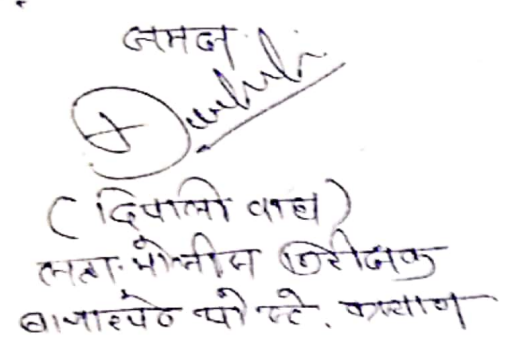 समक्ष
(दिपाली वाघ)
सहा. पोलीस निरीक्षक
बाजारपेठ पो स्टे. कल्याण